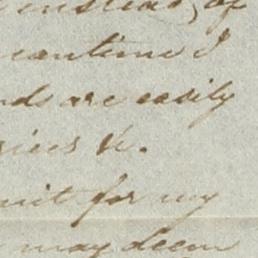 instead, of
meantime I
nds are easily
rices &c.
mit for my
may deem